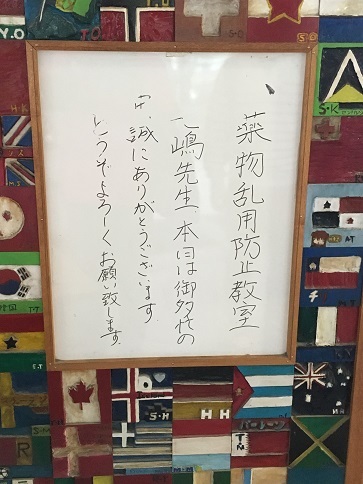 薬物乱用防止教室
嶋先生、本日は御多忙の
中、誠にありがとうございます
どうぞよろしくお願い致します。
Y.O
T.O
H.K
S.K
S.H
H H
T M
E.T